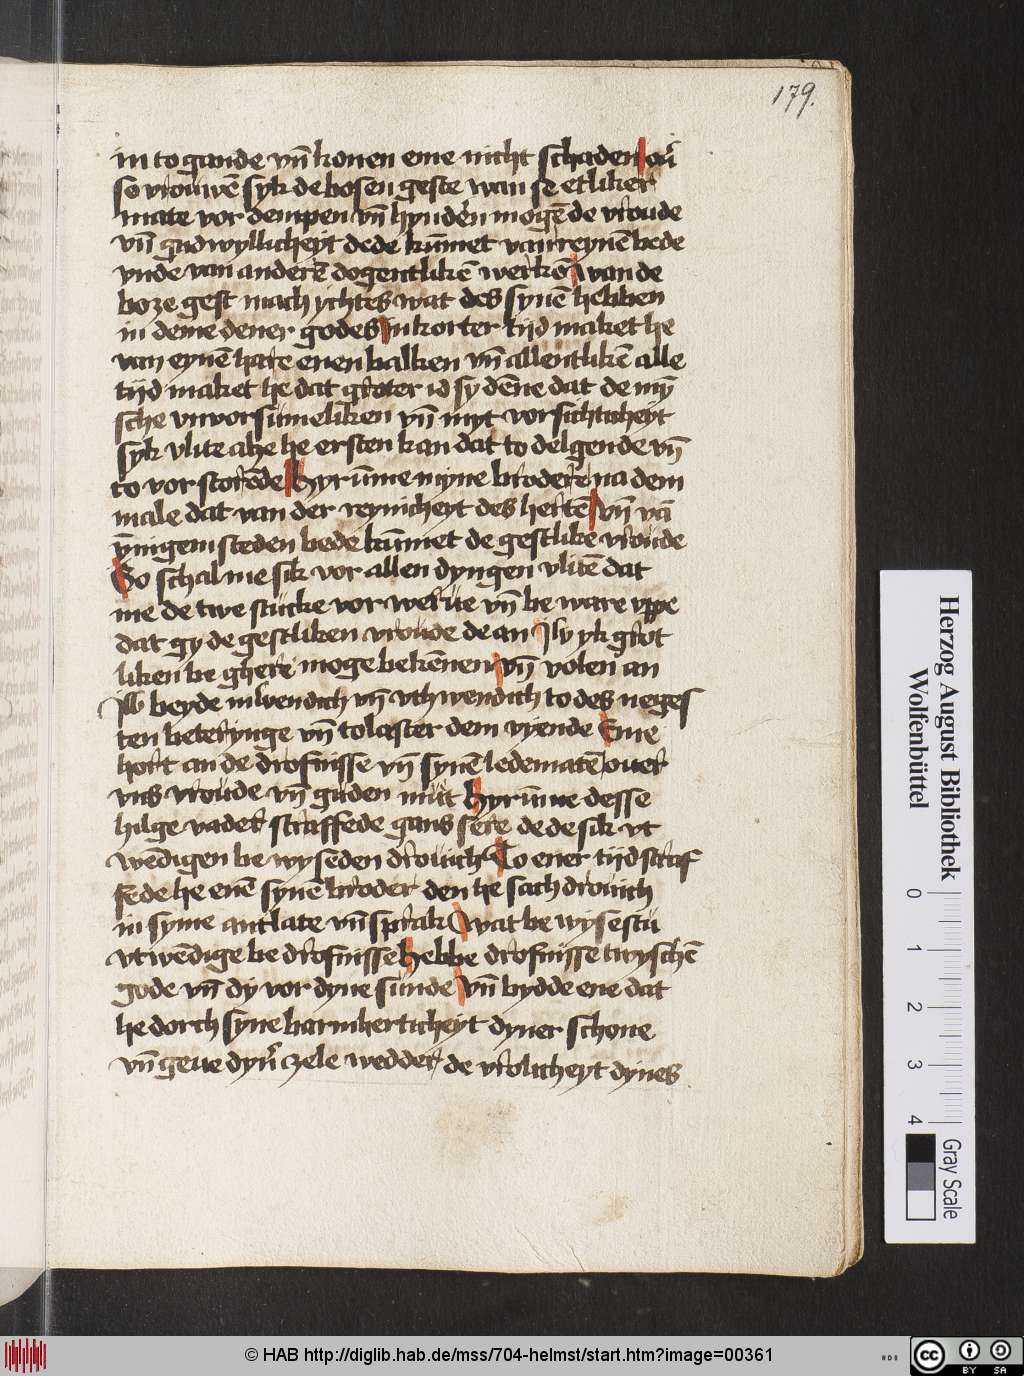 179.
in to gande vn̄ konen eme nicht schaden ou᷑
so vrouwē syk de bosen geste wan se etliker
mate vor dempen vn̄ hynderē mogē de vroude
vn̄ gudwyllicheyt dede kūmet van reynē bede
vnde van anderē dogentlikē werkē wan de
boze gest mach ychtes wat des synē hebben
in deme dener godes in korter tijd maket he
van eynē hare enen balken vn̄ allentlikē alle
tijd maket he dat groter id sy dēne dat de mȳ
sche vnvorsumeliken vn̄ myt vorsichticheyt
syk vlite alze he ersten kan dat to delgende vn̄
to vorstorēde Hyrūme myne brodere na dem
male dat van der reynicheyt des hertē vn̄ vā
ȳnigem steden bede kūmet de gestlike vroude
So schal me sik vor allen dyngen vlitē dat
me de twe stucke vor werue vn̄ be ware vppe
dat gy de gestliken vroude de an Jw yk grot
liken be ghere moge bekēnen vn̄ volen an
Jw beyde inwendich vn̄ vthwendich to des neges
ten beterynge vn̄ to laster dem vyende Eme
hort an de drofnisse vn̄ synē ledematē ouer
vns vroude vn̄ guden mut Hyrūme desse
hilge vader straffede gans sere de de sik vt
wēdigen be wyseden drouich To ener tijd straf
fede he enē synē broder den he sach drouich
in syme antlate vn̄ sprak Wat be wysestu
vtwēdige be drofnisse Hebbe drofnisse twyschē
gode vn̄ dy vor dyne sunde vn̄ bydde ene dat
he dorch syne barmherticheyt dyner schone
vn̄ geue dyn᷑ czele wedder de vrolicheyt dynes
Herzog August Bibliothek
Wolfenbüttel
0 1 2 3 4
Gray Scale
© HAB http://diglib.hab.de/mss/704-helmst/start.htm?image=00361
cc BY SA